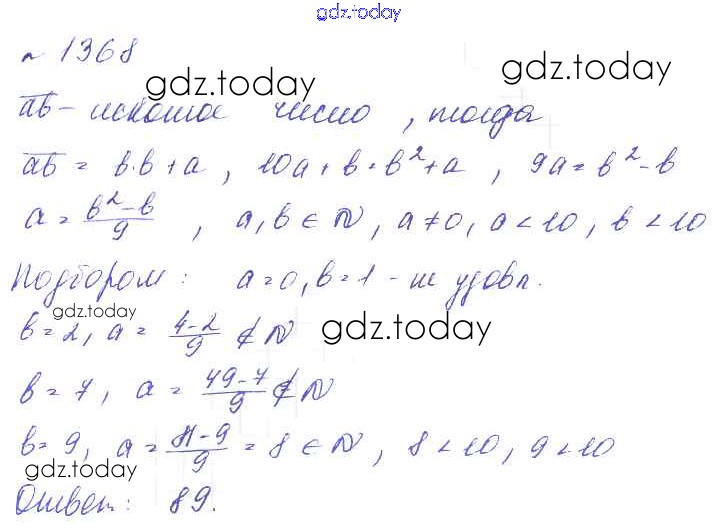 gdz.today
№ 1368
gdz.today gdz.today
ab̅ - искомое число, тогда
ab̅ = b·b+a, 10a+b=b²+a, 9a=b²-b
a = (b²-b)/9, a,b ∈ N, a≠0, a<10, b<10
Подбором: a=0, b=1 - не удовл.
gdz.today
b=2, a = (4-2)/9 ∉ N
gdz.today
b=7, a = (49-7)/9 ∉ N
b=9, a = (81-9)/9 = 8 ∈ N, 8<10, 9<10
gdz.today
Ответ: 89.
gdz.today